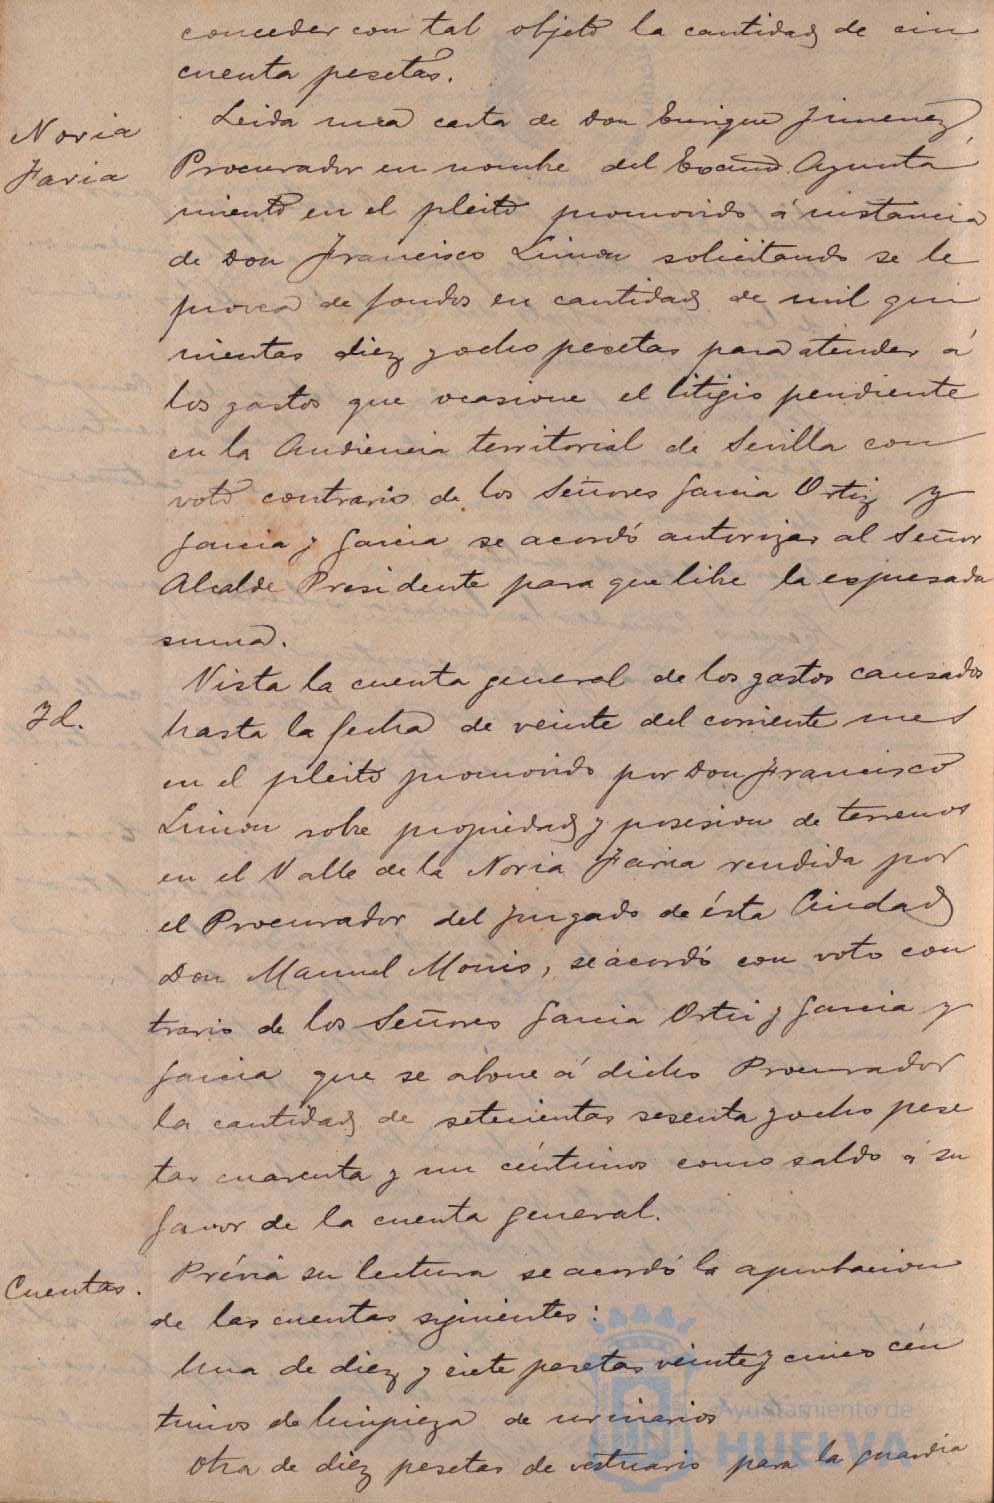 conceder con tal objeto la cantidad de cin
cuenta pesetas.
Noria
Faria
Leida una carta de Don Enrique Jimenez,
Procurador en nombre del Excmo. Ayunta
miento en el pleito promovido á instancia
de Don Francisco Limon solicitando se le
provea de fondos en cantidad de mil qui
nientas diez y ocho pesetas para atender á
los gastos que ocasione el litigio pendiente
en la Audiencia territorial de Sevilla con
voto contrario de los Señores Garcia Ortiz y
Garcia y Garcia se acordó autorizar al Señor
Alcalde Presidente para que libre la expresada
suma.
Id.
Vista la cuenta general de los gastos causados
hasta la fecha de veinte del corriente mes
en el pleito promovido por Don Francisco
Limon sobre propiedad y posesion de terrenos
en el Valle de la Noria Faria rendida por
el Procurador del Juzgado de ésta Ciudad
Don Manuel Monis, se acordó con voto con
trario de los Señores Garcia Ortiz y Garcia y
Garcia que se abone á dicho Procurador
la cantidad de setecientas sesenta y ocho pese
tas cuarenta y un céntimos como saldo á su
favor de la cuenta general.
Cuentas.
Prévia su lectura se acordó la aprobacion
de las cuentas siguientes:
Una de diez y siete pesetas veinte y cinco cén
timos de limpieza de urinarios
Otra de diez pesetas de vestuario para la guardia
Ayuntamiento de
HUELVA